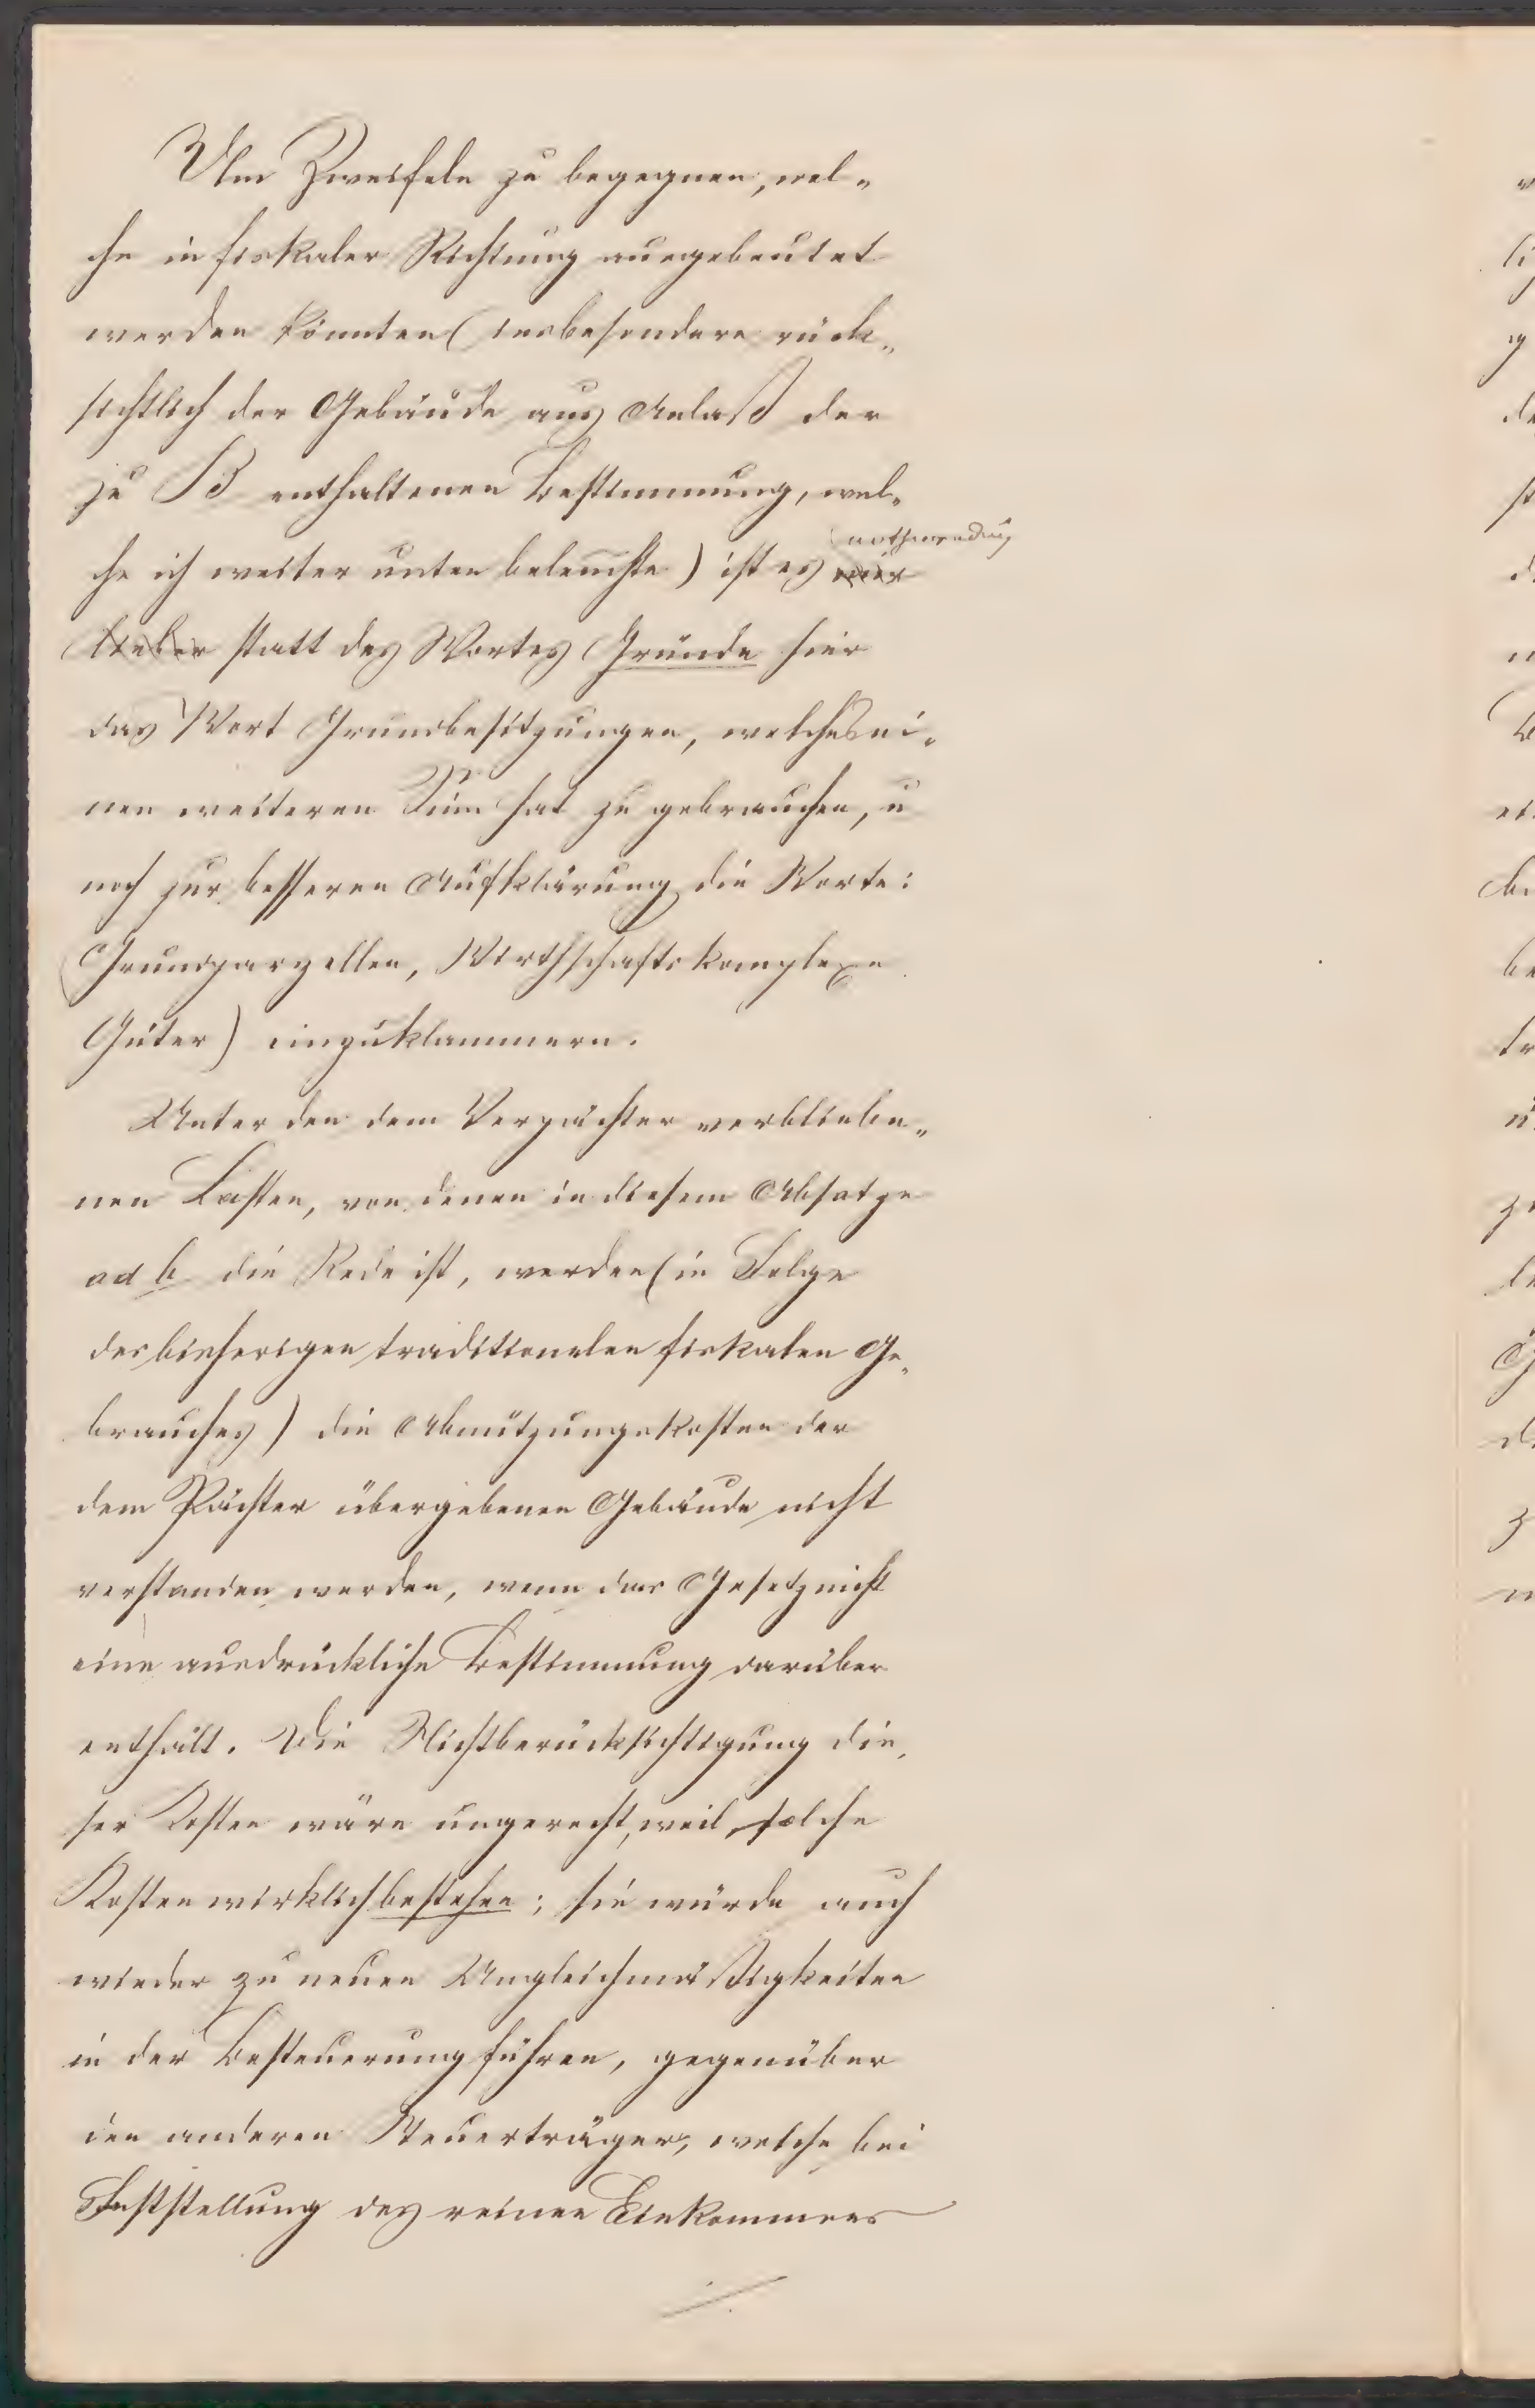 Um Zweifeln zu begegnen, wel-
che in fiskaler Richtung ausgebeutet
werden könnten (insbesondere rück-
sichtlich der Gebäude aus Anlaß der
zu B enthaltenen Bestimmung, wel-
che ich weiter unten beleuchte) ist es nothwendig
statt des Wortes Gründe hier
das Wort Grundbesitzungen, welches ei-
nen weiteren Sinn hat zu gebrauchen, u
noch zur besseren Aufklärung die Worte:
(Grundparzellen, Wirthschaftskomplexe
Güter) einzuklammern.
Unter den dem Verpächter verbliebe-
nen Lasten, von denen in diesem Absatze
ad b die Rede ist, werden (in Folge
des bisherigen traditionalen fiskalen Ge-
brauches) die Abnützungskosten der
dem Pächter übergebenen Gebäude nicht
verstanden werden, wenn das Gesetz nicht
eine ausdrückliche Bestimmung darüber
enthält. Die Nichtberücksichtigung die-
ser Kosten wäre ungerecht, weil solche
Kosten wirklich bestehen; sie würde auch
wieder zu neuen Ungleichmäßigkeiten
in der Besteuerung führen, gegenüber
den anderen Steuerträgern, welche bei
Feststellung des reinen Einkommens